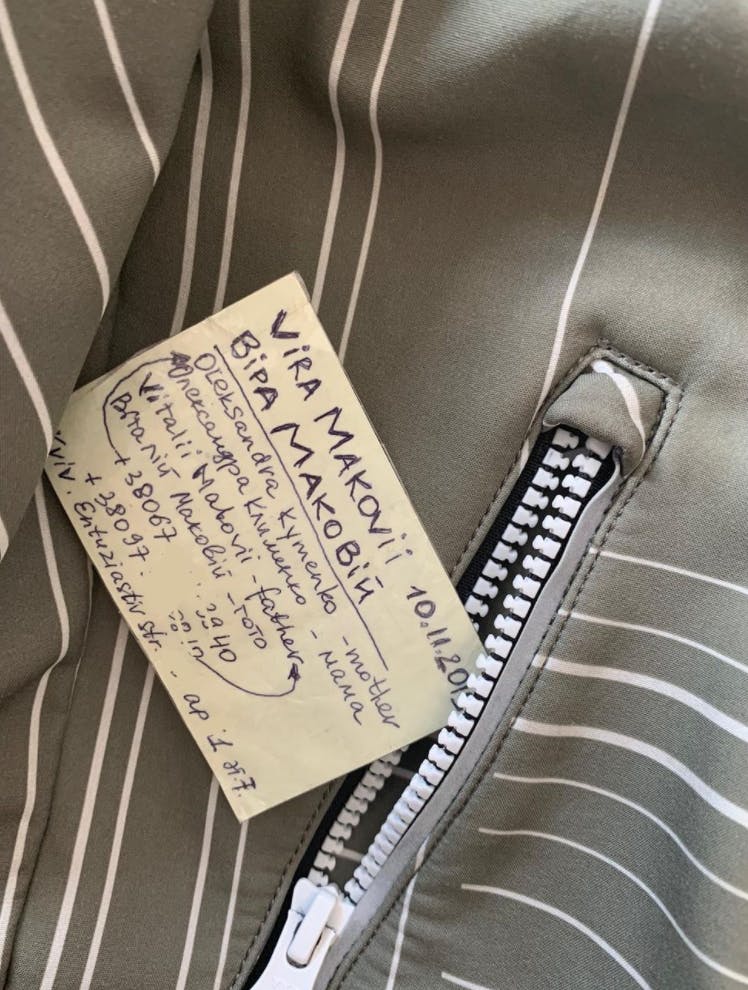 VIRA MAKOVII 10.11.201
ВІРА МАКОВІЙ
Oleksandra Kymenko - mother
Олександра Клименко - мама
Vitalii Makovii - father
Віталій Маковій - тото
+38067 3940
+38097
Kyiv. Entuziastiv str. - ap